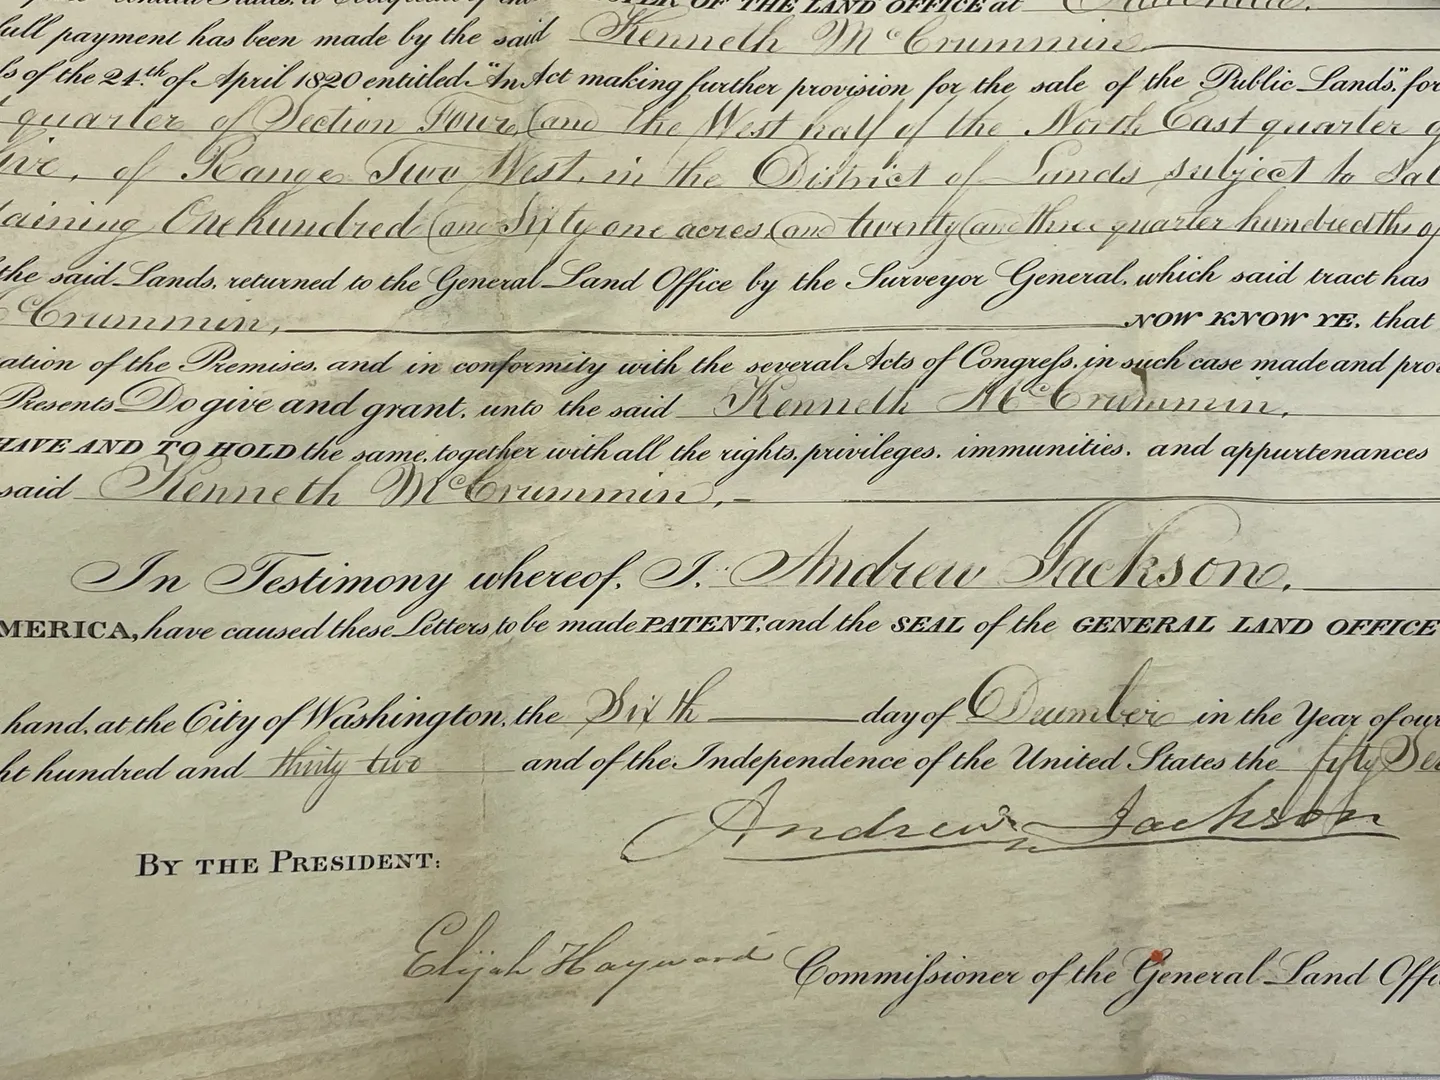 full payment has been made by the said Kenneth McCrummin
of the 24th of April 1820 entitled "An Act making further provision for the sale of the Public Lands", for
quarter of Section Four, and the West half of the North East quarter
of Range Two West, in the District of Lands subject to
One hundred and Sixty one acres, and twenty and three quarter hundredths of
the said Lands, returned to the General Land Office by the Surveyor General, which said tract has
McCrummin, NOW KNOW YE, that
of the Premises, and in conformity with the several Acts of Congress, in such case made and
Presents Do give and grant, unto the said Kenneth McCrummin,
HAVE AND TO HOLD the same, together with all the rights, privileges, immunities, and appurtenances
said Kenneth McCrummin,
In Testimony whereof, I, Andrew Jackson,
AMERICA, have caused these Letters to be made PATENT, and the SEAL of the GENERAL LAND OFFICE
hand, at the City of Washington, the Sixth day of December in the Year of our
hundred and thirty two and of the Independence of the United States the fifty
Andrew Jackson
BY THE PRESIDENT:
Elijah Hayward Commissioner of the General Land